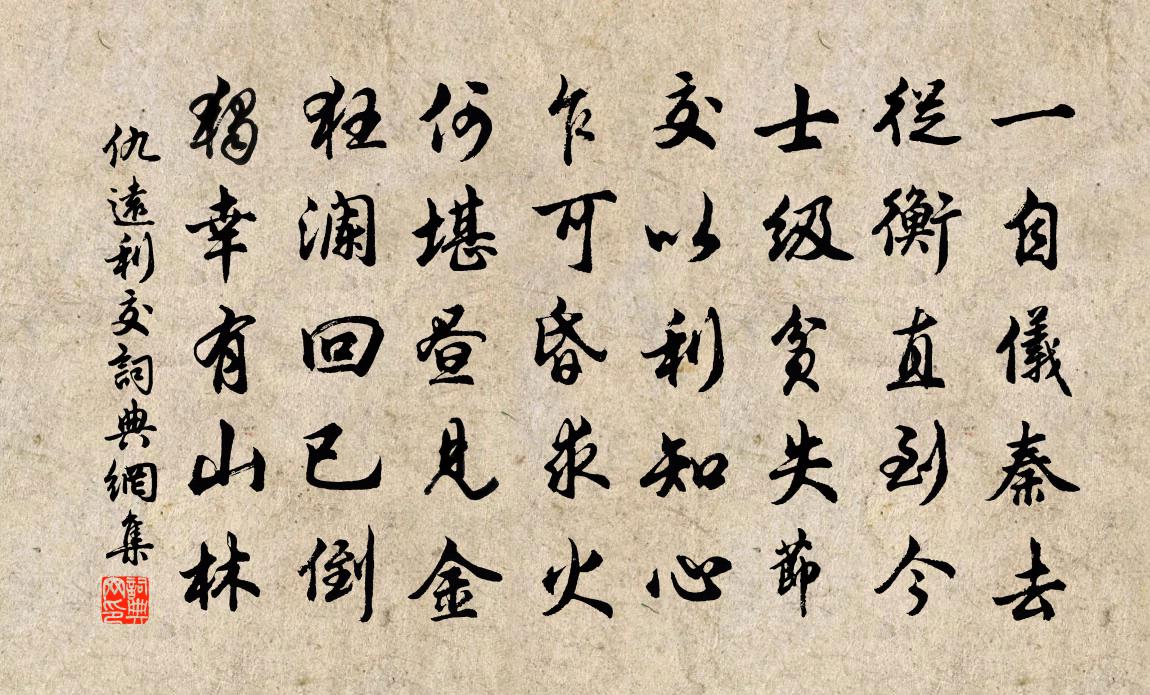 一自儀秦去
從衡直到今
士級貧失節
交以利知心
乍可昏求火
何堪晝見金
狂瀾回已倒
獨幸有山林
仇遠利交詞典網集
詞典网印